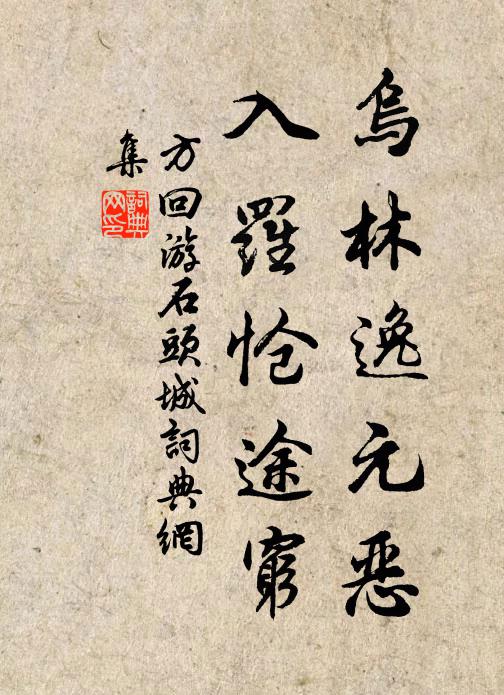 烏林逸元恶
入羅怆途窮
方回游石頭城詞典網
集
詞典
网印